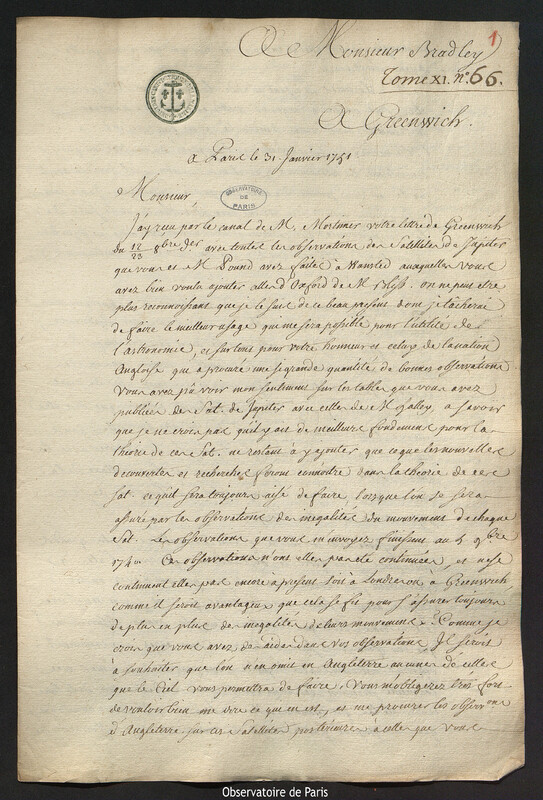 A Monsieur Bradley
1
Tome XI. n.º 66.
A Greenwich.
a Paris le 31. Janvier 1751
OBSERVATOIRE
DE
PARIS
Monsieur,
J'ay reçu par le canal de M. Mortimer votre lettre de Greenwich
du 12/23 8bre der avec toutes les observations des Satellites de Jupiter
que vous et M. Pound avez faites a Wansted auxquelles vous
avez bien voulu ajouter celles d'Oxford de M. Bliss. on ne peut etre
plus reconnoissant que je le suis de ce beau present dont je tacherai
de faire le meilleur usage que me sera possible pour l'utilité de
l'astronomie, et surtout pour votre honneur et celuy de la nation
Angloise qui a procuré une si grande quantité de bonnes observations
Vous avez pû voir mon sentiment sur les tables que vous avez
publiées des Sat. de Jupiter avec celles de M. Halley, a savoir
que je ne crois pas qu'il y ait de meilleur fondement pour la
theorie de ces Sat. ne restant à y ajouter que ce que les nouvelles
decouvertes et recherches feront connoitre dans la theorie de ces
Sat. ce qu'il sera toujours aisé de faire, lorsque l'on se sera
assuré par les observations des inegalités du mouvement de chaque
Sat. Les observations que vous m'envoyez finissent au 5 9bre
174 Ces observations n'ont elles pas eté continuées, et ne se
continuent elles pas encore a present soit à Londres ou a Greenwich,
comme il seroit avantageux que cela se fit pour s'assurer toujours
de plus en plus des inegalités de leurs mouvemens. Comme je
crois que vous avez des aides dans vos observations, Il seroit
à souhaiter que l'on n'en omit en Angleterre aucune de celles
que le Ciel vous permettra de faire, Vous m'obligerez très fort
de vouloir bien me dire ce qui en est, et me procurer les observons
d'Angleterre sur ces Satellites posterieures à celles que vous
Observatoire de Paris